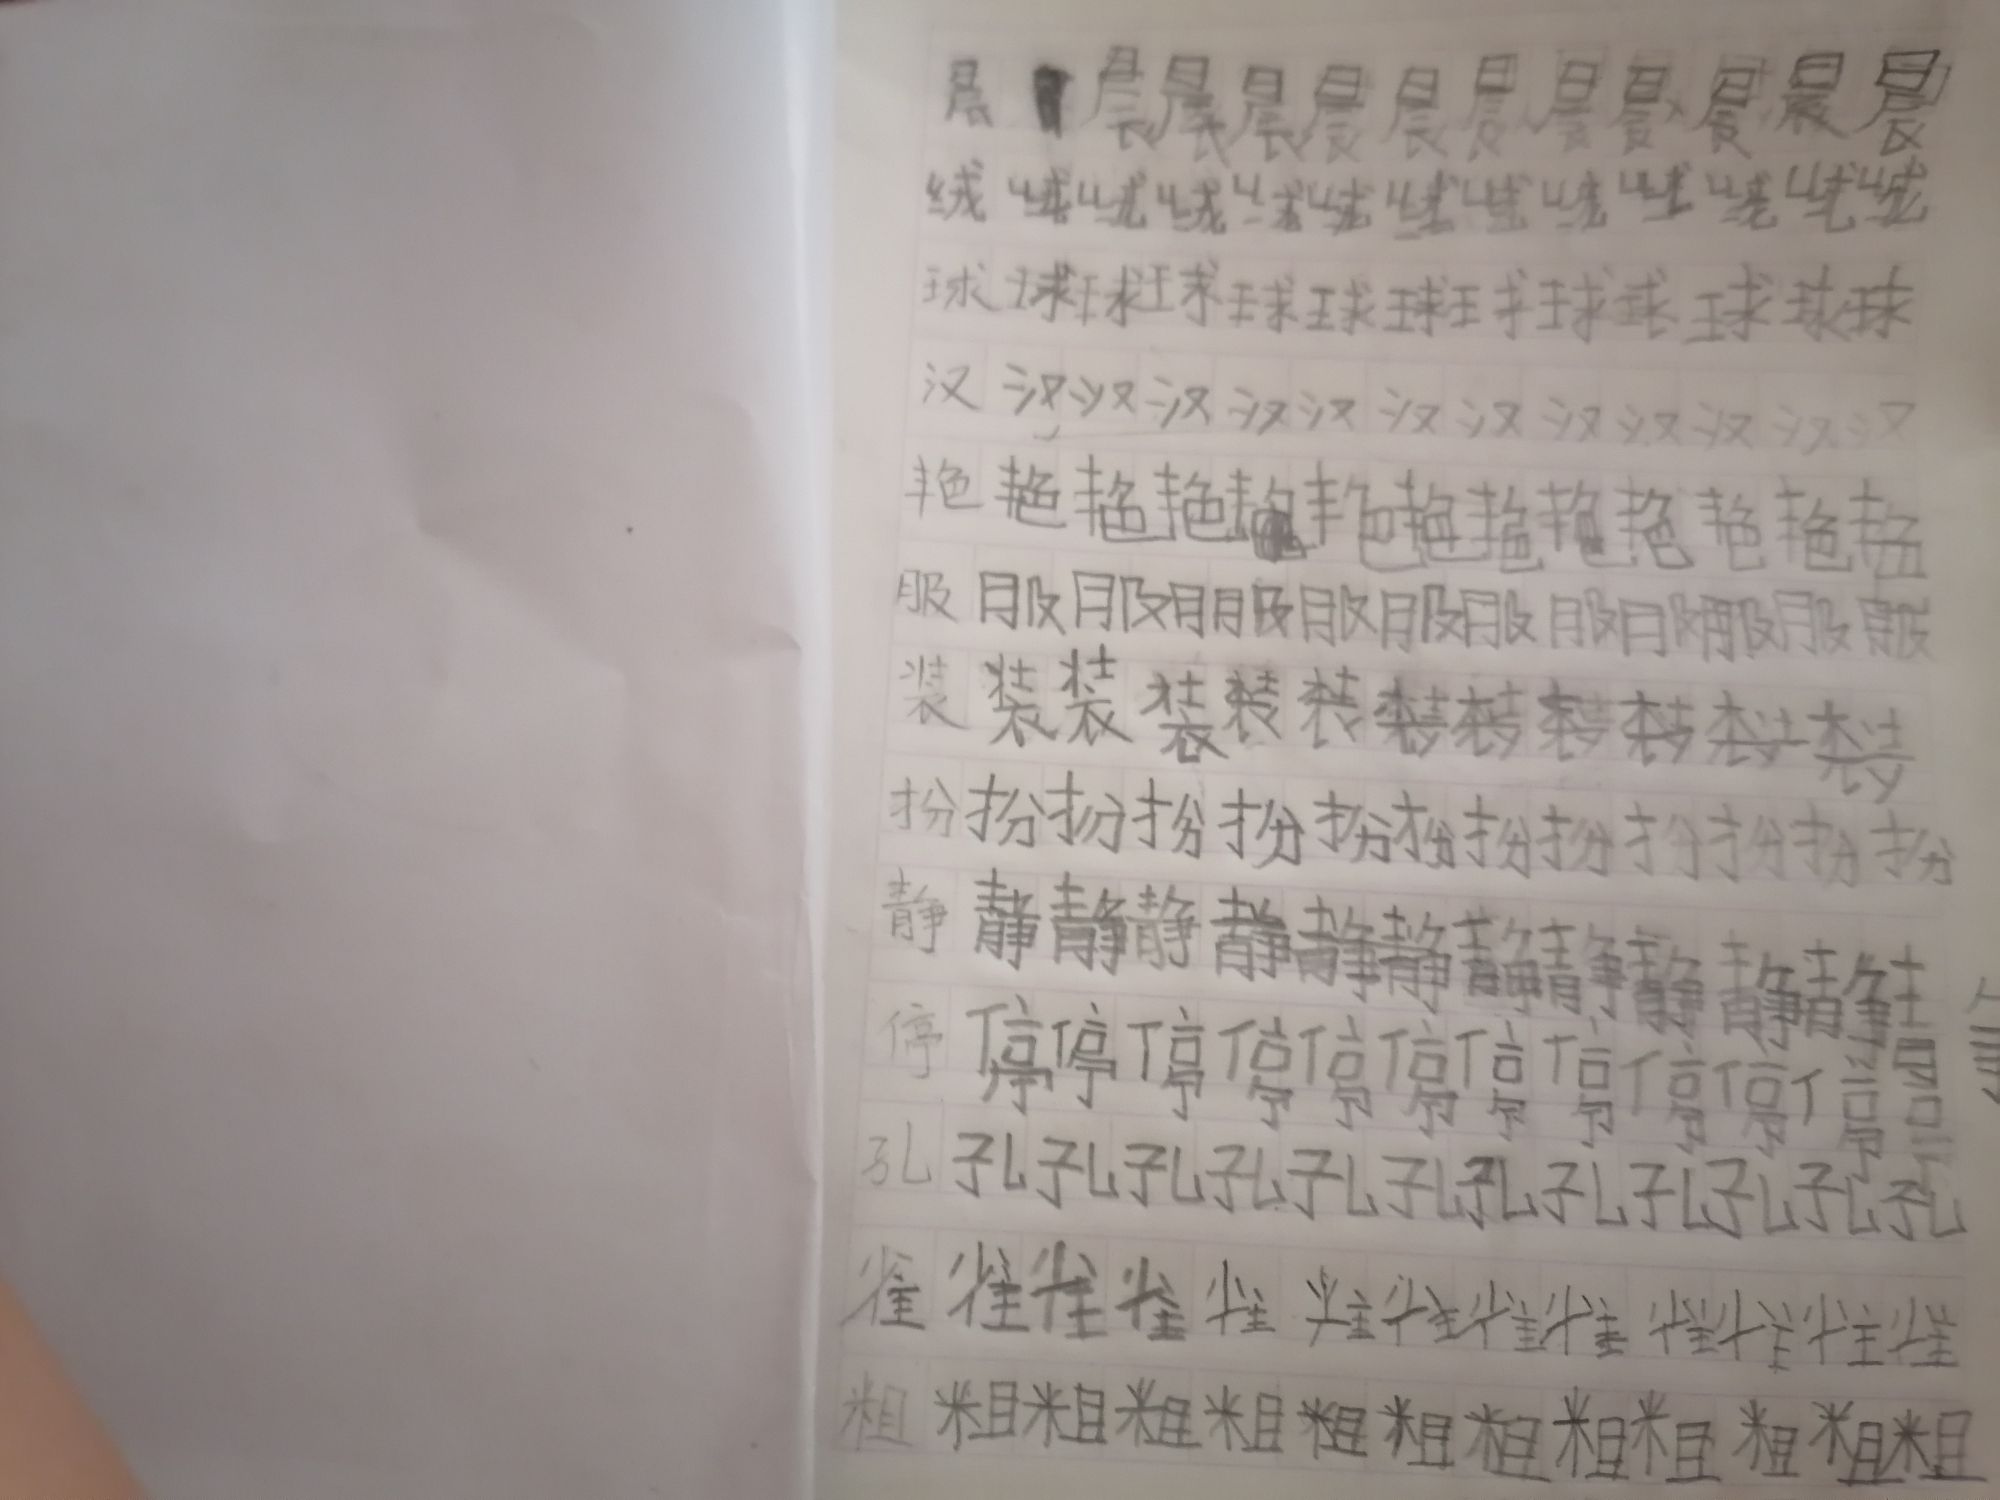 晨 晨 晨 晨 晨 晨 晨 晨 晨 晨 晨 晨
绒 绒 绒 绒 绒 绒 绒 绒 绒 绒 绒 绒 绒
球 球 球 球 球 球 球 球 球 球 球 球 球
汉 汉 汉 汉 汉 汉 汉 汉 汉 汉 汉 汉 汉
艳 艳 艳 艳 艳 艳 艳 艳 艳 艳 艳 艳 艳
服 服 服 服 服 服 服 服 服 服 服 服
装 装 装 装 装 装 装 装 装 装 装 装
扮 扮 扮 扮 扮 扮 扮 扮 扮 扮 扮 扮 扮
静 静 静 静 静 静 静 静 静 静 静 静 静
停 停 停 停 停 停 停 停 停 停 停 停 停
孔 孔 孔 孔 孔 孔 孔 孔 孔 孔 孔 孔 孔
雀 雀 雀 雀 雀 雀 雀 雀 雀 雀 雀 雀 雀
粗 粗 粗 粗 粗 粗 粗 粗 粗 粗 粗 粗 粗